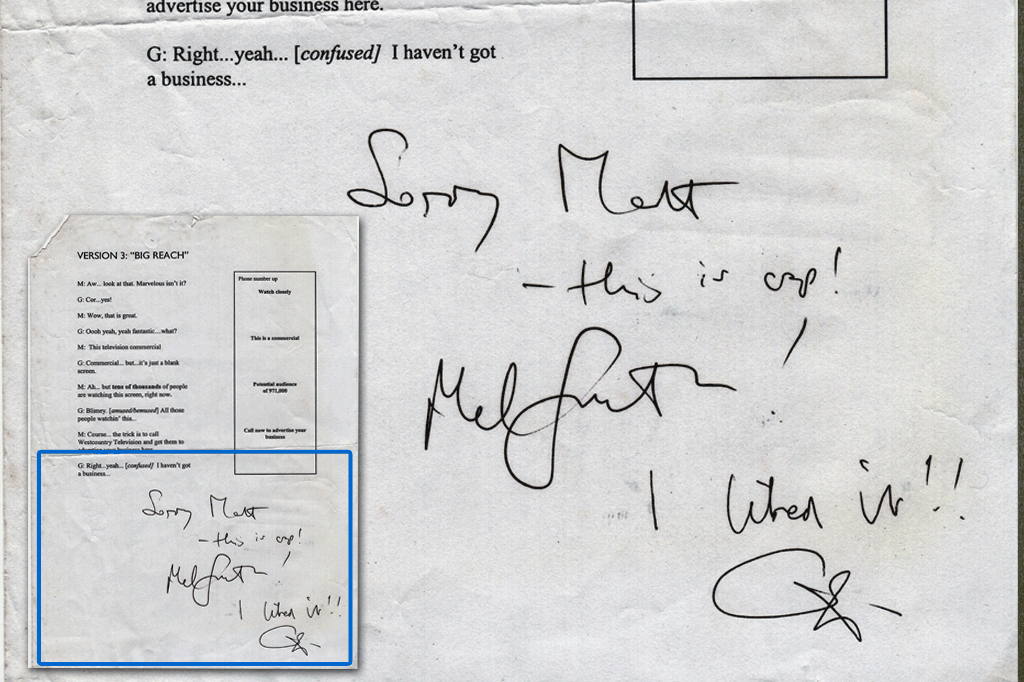 advertise your business here.
G: Right...yeah... [confused] I haven't got
a business...
Sorry Matt
- this is crap!
Mel Smith!
I liked it!!
VERSION 3: "BIG REACH"
M: Aw... look at that. Marvelous isn't it?
G: Cor...yes!
M: Wow, that is great.
G: Oooh yeah, yeah fantastic....what?
M: This television commercial
G: Commercial... but...it's just a blank
screen.
M: Ah... but tens of thousands of people
are watching this screen, right now.
G: Blimey. [amused/bemused] All those
people watchin' this...
M: Course... the trick is to call
Westcountry Television and get them to
advertise your business here.
G: Right...yeah... [confused] I haven't got
a business...
Phone number up
Watch closely
This is a commercial
Potential audience
of 971,000
Call now to advertise your
business
Sorry Matt
- this is crap!
Mel Smith!
I liked it!!